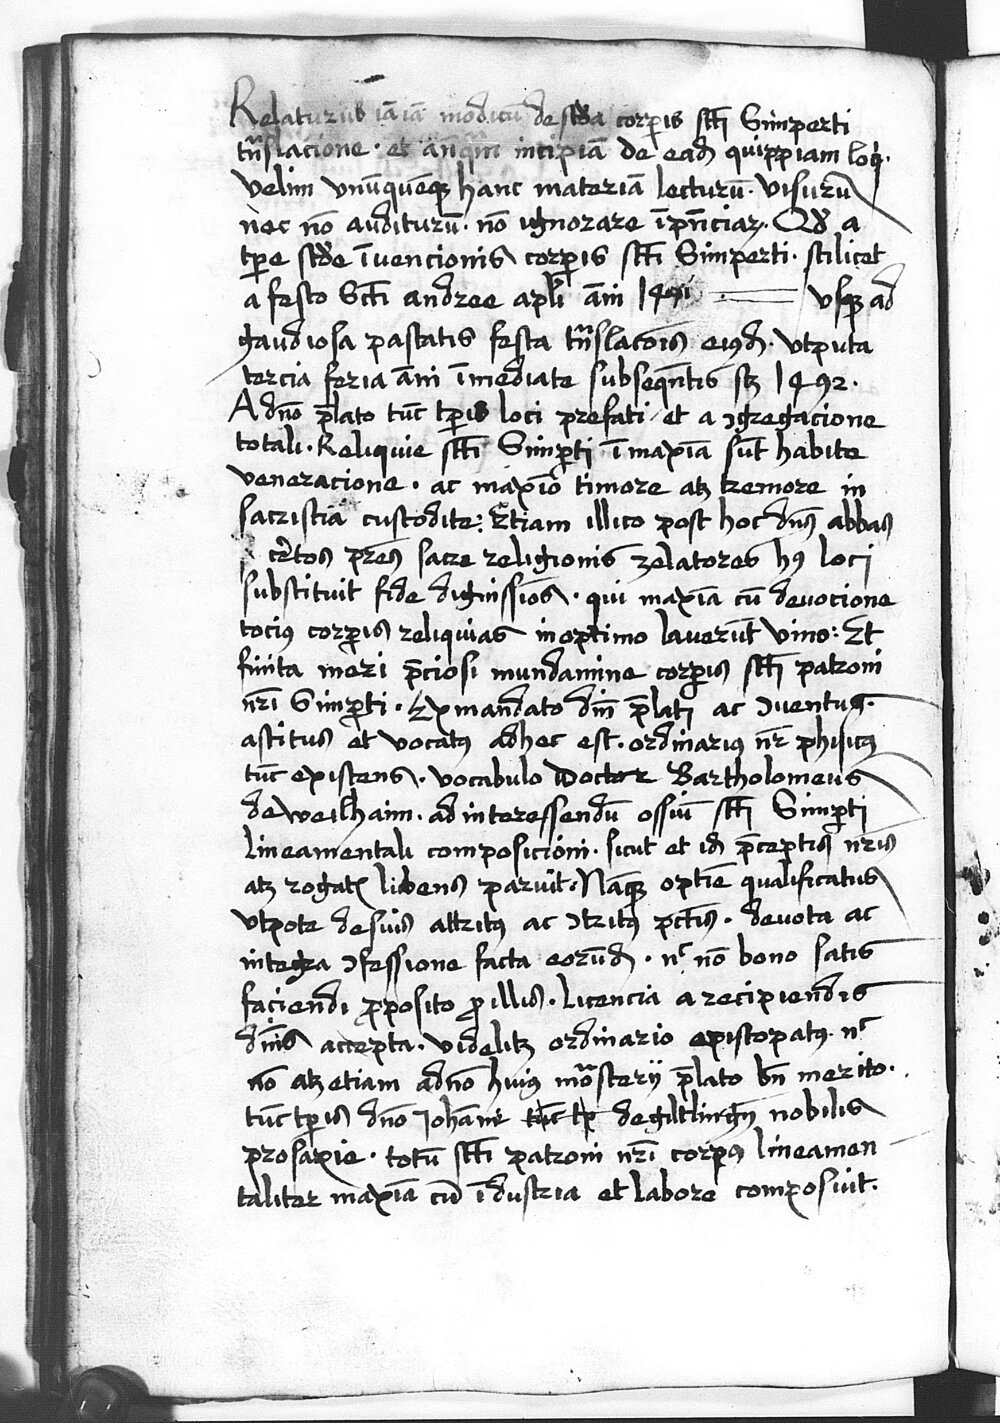 Relaturus iā iā modicū de scḋa corꝑis sc̄ti Simperti
trāslacione · et anteq̄m incipiā de eadē quippiam loqͥ·
velim vnūquēqꝫ hanc materiā lecturū · visurū
nec nō auditurū · nō ignorare īpn̄ciaꝝ · Qd̄ a
tꝑe scḋe īvencionis corꝑis sc̄ti Simperti · scilicet
a festo Scti andree apl̄i āni 1491 vsqꝫ ad
gaudiosa pascatis festa trāslacōis eiꝰdē · vtputa
tercia feria āni īmediate subseqn̄tis sꝫ 1492 ·
A dn̄o p̄lato tūc tꝑis loci prefati / et a ꝯgregacione
totali · Reliquie sc̄ti Simꝑti ī maxīa sūt habite
veneracione · ac maxīo timore atꝫ tremore in
sacristia custodite : Etiam illico post hoc dn̄s abbas
cͤtos pr̄es sacre religionis zelatores hꝰ loci
substituit fide dignissīos · qui maxīa cū devocione
tociꝰ corꝑis reliquias in optimo laverūt vino : Et
finita meri p̄ciosi mundamine corꝑis sc̄ti patroni
nr̄i Simꝑti · Ex mandato dn̄i p̄lati ac ꝯventus ·
ascitus et vocatꝰ adhec est · ordinariꝰ nr̄ phisicꝰ
tūc existens · vocabulo Doctor Bartholomeus
de weilhaim · ad interessendū ossiū sc̄ti Simꝑti
lineamentali composicioni · sicut et id p̄ceptis nr̄is
atꝫ rogatꝭ libens paruit · Nāqꝫ optīe qualificatus
vtpote de suis attritꝰ ac ꝯtritꝰ pc̄tis · devota ac
integra ꝯfessione facta eorūdē · nͨ nō bono satis
faciendi ꝓposito ꝓ illis · Licencia a recipiendis
dn̄is accepta · videlitꝫ ordinario episcopatꝰ · nͨ
nō atꝫ etiam adn̄o huiꝰ mōasterij p̄lato bn̄ merito ·
tūc tꝑis dn̄o Johāni de giltlingn̄ nobilis
prosapie · totū sc̄ti patroni nr̄i corpꝰ lineamen
taliter maxīa cū īdustria et labore composuit ·